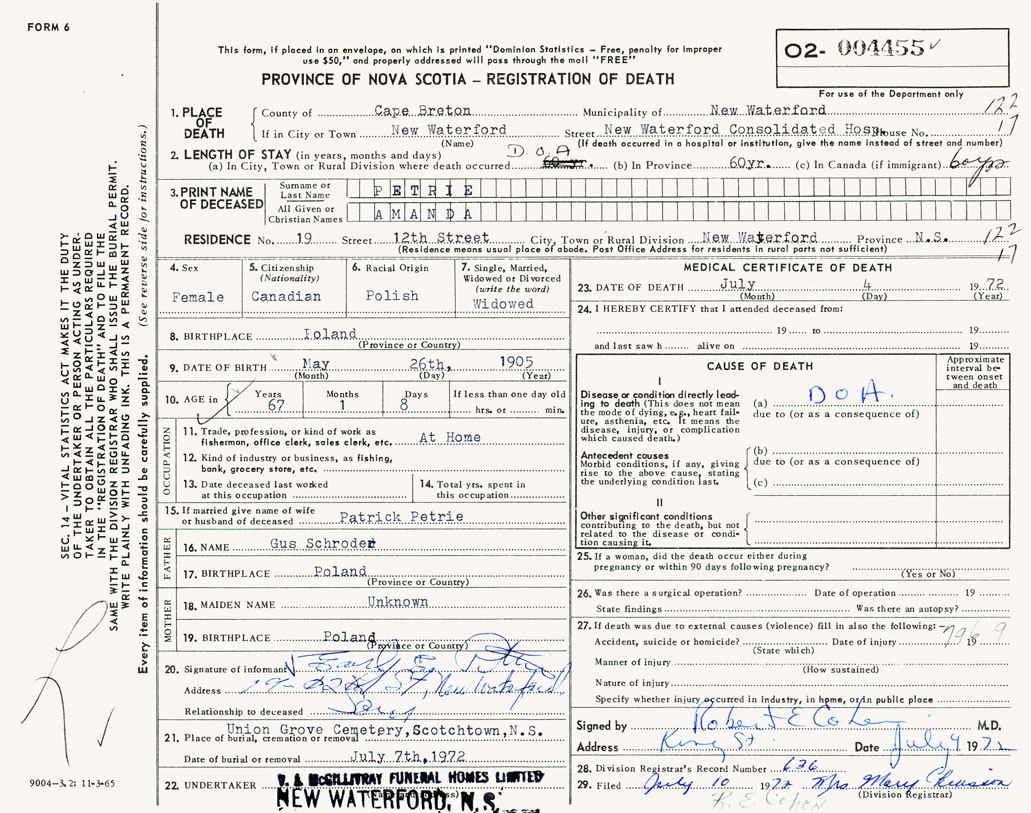 FORM 6
This form, if placed in an envelope, on which is printed "Dominion Statistics – Free, penalty for improper
use $50," and properly addressed will pass through the mail "FREE"
O2- 004455
For use of the Department only
PROVINCE OF NOVA SCOTIA – REGISTRATION OF DEATH
1. PLACE OF DEATH
County of Cape Breton Municipality of New Waterford 122
If in City or Town New Waterford Street New Waterford Consolidated Hosp. House No. 17
(Name) (If death occurred in a hospital or institution, give the name instead of street and number)
2. LENGTH OF STAY (in years, months and days) D.O.A
(a) In City, Town or Rural Division where death occurred 60 yr. (b) In Province 60yr. (c) In Canada (if immigrant) 60yrs
3. PRINT NAME OF DECEASED
Surname or Last Name PETRIE
All Given or Christian Names AMANDA
RESIDENCE No. 19 Street 12th Street City, Town or Rural Division New Waterford Province N.S. 122
(Residence means usual place of abode. Post Office Address for residents in rural parts not sufficient) 17
4. Sex Female
5. Citizenship (Nationality) Canadian
6. Racial Origin Polish
7. Single, Married, Widowed or Divorced (write the word) Widowed
8. BIRTHPLACE Ioland
(Province or Country)
9. DATE OF BIRTH May 26th, 1905
(Month) (Day) (Year)
10. AGE in Years Months Days If less than one day old
67 1 8 hrs. or min.
OCCUPATION
11. Trade, profession, or kind of work as
fisherman, office clerk, sales clerk, etc. At Home
12. Kind of industry or business, as fishing,
bank, grocery store, etc.
13. Date deceased last worked
at this occupation
14. Total yrs. spent in
this occupation
15. If married give name of wife
or husband of deceased Patrick Petrie
FATHER
16. NAME Gus Schroder
17. BIRTHPLACE Poland
(Province or Country)
MOTHER
18. MAIDEN NAME Unknown
19. BIRTHPLACE Poland
(Province or Country)
20. Signature of informant
Address New Waterford
Relationship to deceased Son
21. Place of burial, cremation or removal Union Grove Cemetery, Scotchtown, N.S.
Date of burial or removal July 7th, 1972
22. UNDERTAKER V. J. McGILLIVRAY FUNERAL HOMES LIMITED
NEW WATERFORD, N.S.
MEDICAL CERTIFICATE OF DEATH
23. DATE OF DEATH July 4 1972
(Month) (Day) (Year)
24. I HEREBY CERTIFY that I attended deceased from:
19 to 19
and last saw h alive on 19
CAUSE OF DEATH
Approximate interval between onset and death
I
Disease or condition directly lead-
ing to death (This does not mean
the mode of dying, e.g., heart fail-
ure, asthenia, etc. It means the
disease, injury, or complication
which caused death.)
(a) D O A.
due to (or as a consequence of)
Antecedent causes
Morbid conditions, if any, giving
rise to the above cause, stating
the underlying condition last.
(b)
due to (or as a consequence of)
(c)
II
Other significant conditions
contributing to the death, but not
related to the disease or condi-
tion causing it.
25. If a woman, did the death occur either during
pregnancy or within 90 days following pregnancy?
(Yes or No)
26. Was there a surgical operation? Date of operation 19
State findings Was there an autopsy?
27. If death was due to external causes (violence) fill in also the following: 796.9
Accident, suicide or homicide? Date of injury 19
(State which)
Manner of injury
(How sustained)
Nature of injury
Specify whether injury occurred in industry, in home, or in public place
Signed by Robert E Cohen M.D.
Address King St Date July 4 1972
28. Division Registrar's Record Number 636
29. Filed July 10 1972 Mrs Mary
(Division Registrar)
R. E. COHEN
SEC. 14 – VITAL STATISTICS ACT MAKES IT THE DUTY
OF THE UNDERTAKER OR PERSON ACTING AS UNDER-
TAKER TO OBTAIN ALL THE PARTICULARS REQUIRED
IN THE "REGISTRATION OF DEATH" AND TO FILE THE
SAME WITH THE DIVISION REGISTRAR WHO SHALL ISSUE THE BURIAL PERMIT.
WRITE PLAINLY WITH UNFADING INK. THIS IS A PERMANENT RECORD.
Every item of information should be carefully supplied. (See reverse side for instructions.)
9004-3.2: 11-3-65